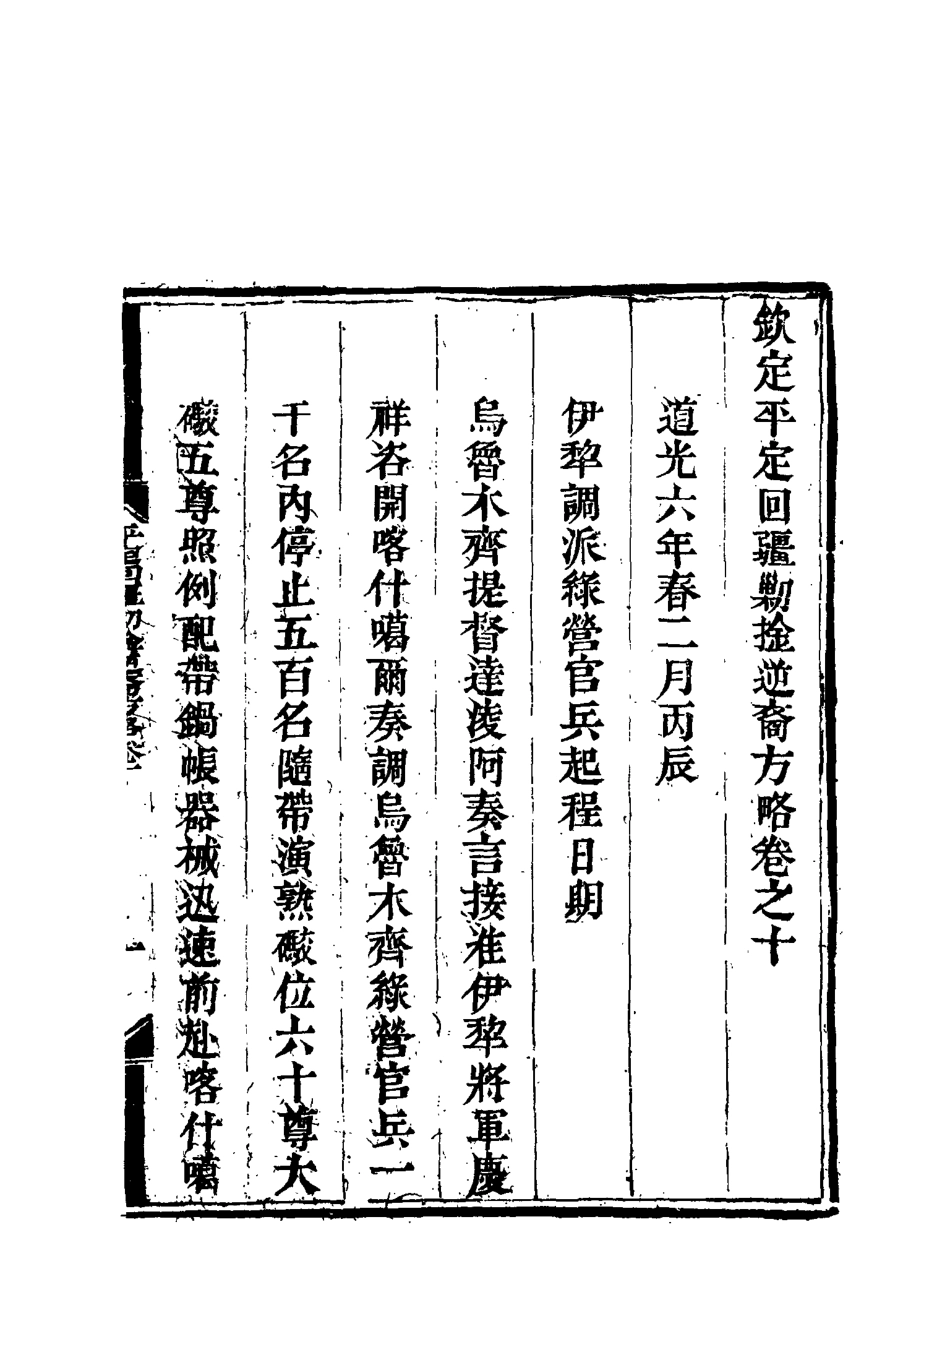 欽定平定回疆剿捦逆裔方略卷之十
道光六年春二月丙辰
伊犂調派綠營官兵起程日期
烏魯木齊提督達淩阿奏言接准伊犂將軍慶
祥咨開喀什噶爾奏調烏魯木齊綠營官兵一
千名內停止五百名隨帶演熟礮位六十尊大
礮五尊照例配帶鍋帳器械迅速前赴喀什噶
一